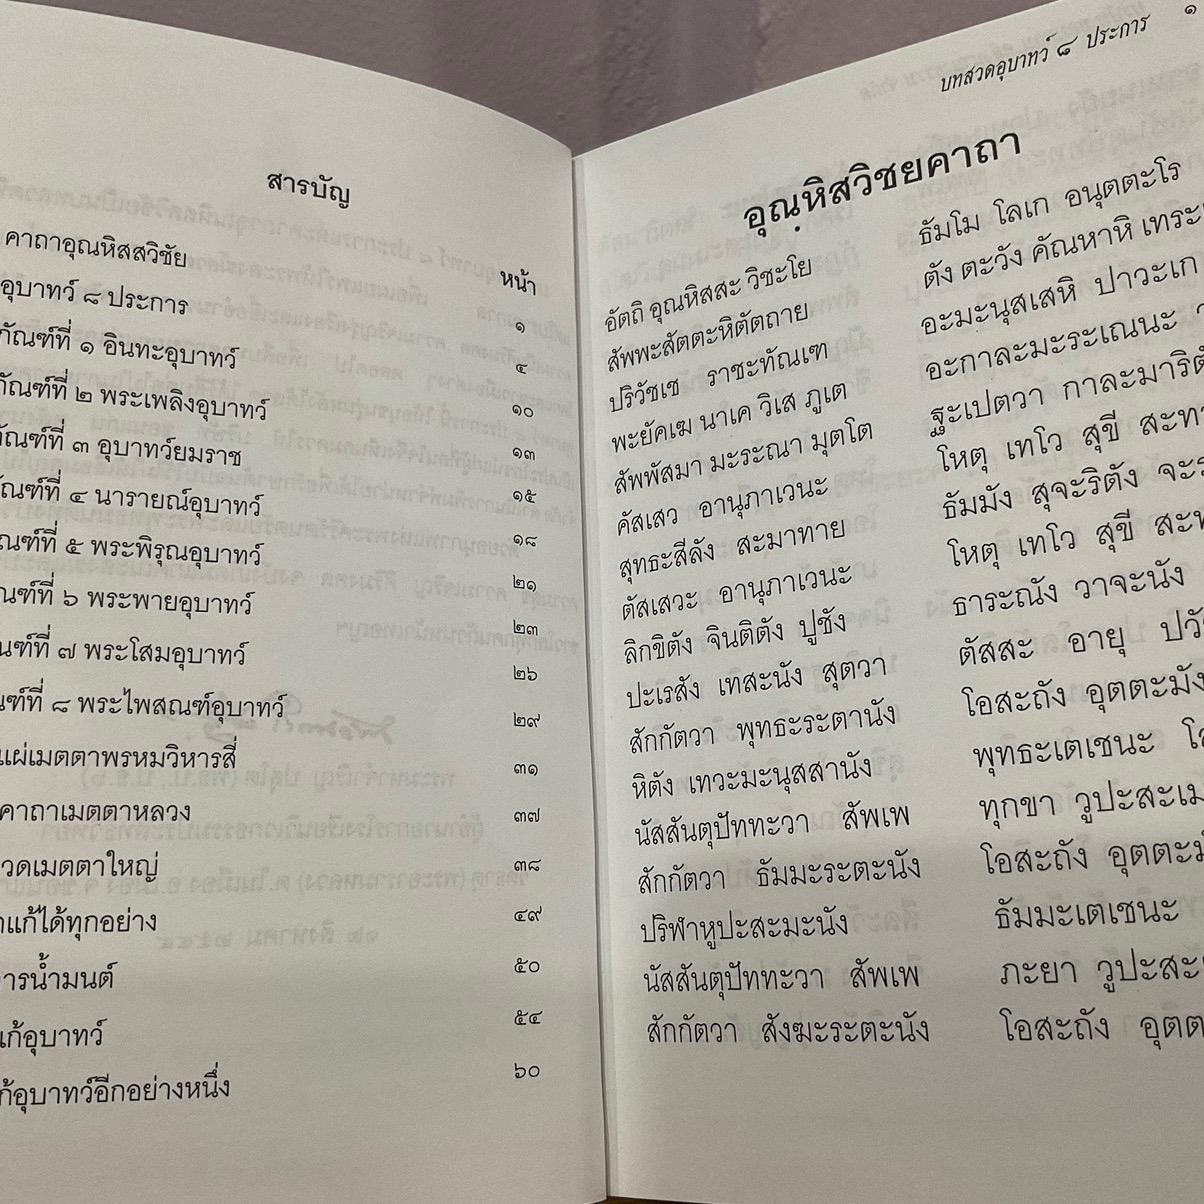 สารบัญ
หน้า
คาถาอุณหิสสวิชัย ๑
อุบาทว์ ๘ ประการ ๔
กัณฑ์ที่ ๑ อินทะอุบาทว์ ๑๐
กัณฑ์ที่ ๒ พระเพลิงอุบาทว์ ๑๓
กัณฑ์ที่ ๓ อุบาทว์ยมราช ๑๕
กัณฑ์ที่ ๔ นารายณ์อุบาทว์ ๑๘
ัณฑ์ที่ ๕ พระพิรุณอุบาทว์ ๒๑
ณฑ์ที่ ๖ พระพายอุบาทว์ ๒๓
ณฑ์ที่ ๗ พระโสมอุบาทว์ ๒๖
ณฑ์ที่ ๘ พระไพสณฑ์อุบาทว์ ๒๙
แผ่เมตตาพรหมวิหารสี่ ๓๑
คาถาเมตตาหลวง ๓๗
วดเมตตาใหญ่ ๓๘
าแก้ได้ทุกอย่าง ๔๙
ารน้ำมนต์ ๕๐
แก้อุบาทว์ ๕๔
ก้อุบาทว์อีกอย่างหนึ่ง ๖๐
บทสวดอุบาทว์ ๘ ประการ ๑
อุณฺหิสวิชยคาถา
อัตถิ อุณหิสสะ วิชะโย ธัมโม โลเก อนุตตะโร
สัพพะสัตตะหิตัตถายะ ตัง ตะวัง คัณหาหิ เทระ
ปริวัชเช ราชะทัณเฑ อะมะนุสเสหิ ปาวะเก
พะยัคเฆ นาเค วิเส ภูเต อะกาละมะระเณนะ
สัพพัสมา มะระณา มุตโต ฐะเปตวา กาละมาริตั
ตัสเสวะ อานุภาเวนะ โหตุ เทโว สุขี สะทา
สุทธะสีลัง สะมาทายะ ธัมมัง สุจะริตัง จะร
ตัสเสวะ อานุภาเวนะ โหตุ เทโว สุขี สะท
ลิกขิตัง จินติตัง ปูชัง ธาระณัง วาจะนัง
ปะเรสัง เทสะนัง สุตวา ตัสสะ อายุ ปวั
สักกัตวา พุทธะระตานัง โอสะถัง อุตตะมัง
หิตัง เทวะมะนุสสานัง พุทธะเตเชนะ โส
นัสสันตุปัททะวา สัพเพ ทุกขา วูปะสะเม
สักกัตวา ธัมมะระตะนัง โอสะถัง อุตตะมั
ปริฬาหูปะสะมะนัง ธัมมะเตเชนะ
นัสสันตุปัททะวา สัพเพ ภะยา วูปะสะ
สักกัตวา สังฆะระตะนัง โอสะถัง อุตต